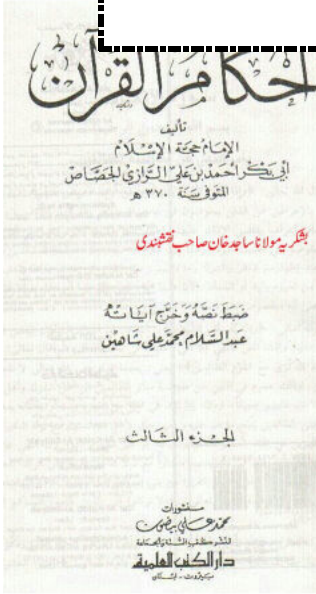 أحكام القرآن
تأليف
الإمام حجة الإسلام
أبي بكر أحمد بن علي الرازي الجصاص
المتوفى سنة ٣٧٠ هـ
بشکریہ مولانا ساجد خان صاحب نقشبندی
ضبط نصه وخرج آياته
عبد السلام محمد علي شاهين
الجزء الثالث
منشورات
محمد علي بيضون
لنشر كتب السنة والجماعة
دار الكتب العلمية
بيروت - لبنان